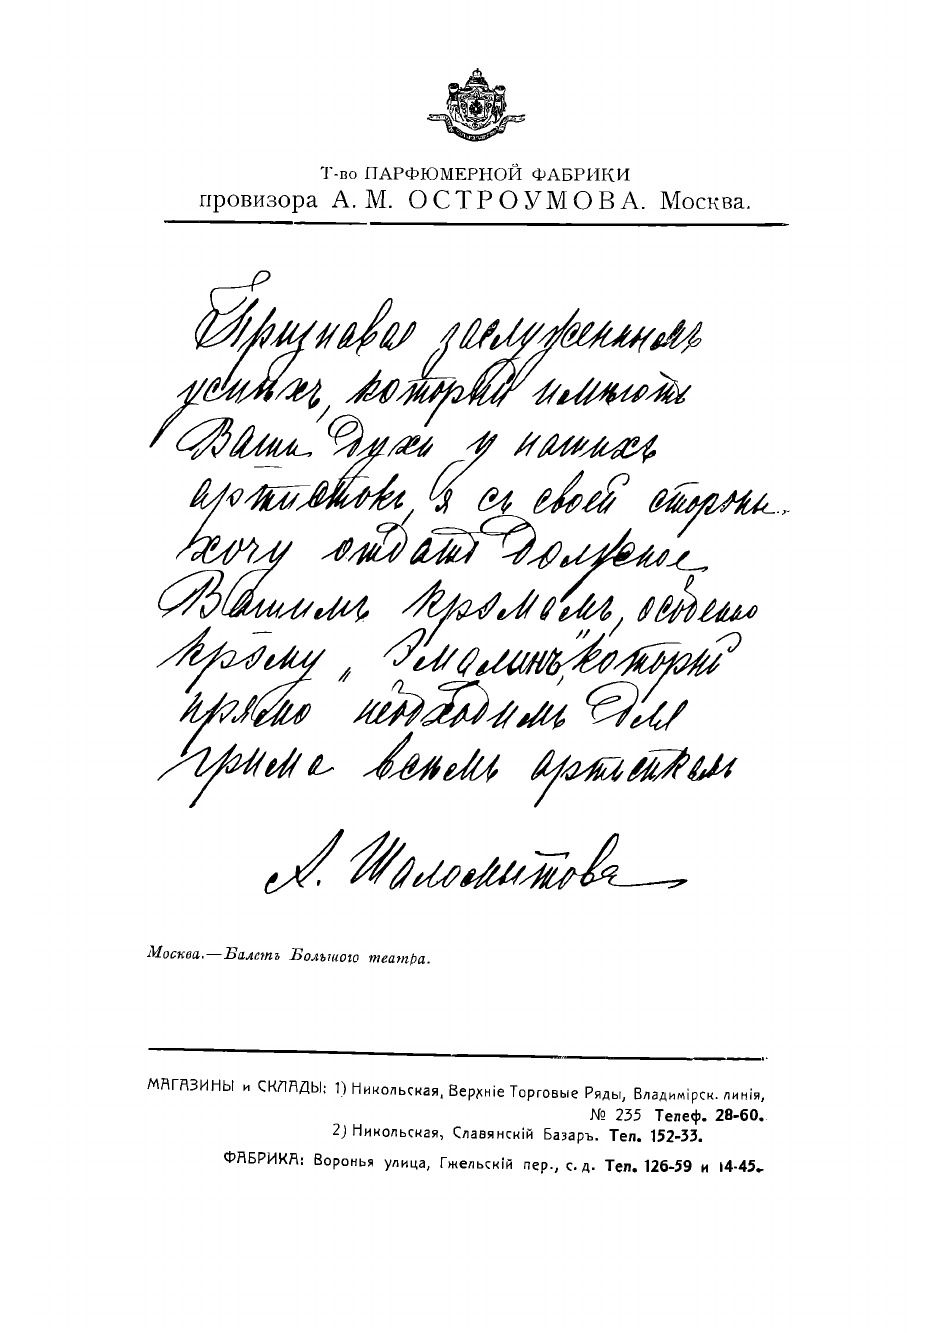 Т-во ПАРФЮМЕРНОЙ ФАБРИКИ
провизора А. М. ОСТРОУМОВА. Москва.
Признавая заслуженнымъ
успѣхъ, который имѣютъ
Ваши Духи у нашихъ
артистокъ, я съ своей стороны
хочу отдать Должное
Вашимъ Кремамъ, особенно
Крэму „Эмалинъ", который
прямо необходимъ Для
грима всѣмъ артисткамъ
А. Шаломытова
Москва.—Балетъ Большого театра.
МАГАЗИНЫ и СКЛАДЫ: 1) Никольская, Верхнiе Торговые Ряды, Владимiрск. линiя,
№ 235 Телеф. 28-60.
2) Никольская, Славянскiй Базаръ. Тел. 152-33.
ФАБРИКА: Воронья улица, Гжельскiй пер., с. д. Тел. 126-59 и 14-45.